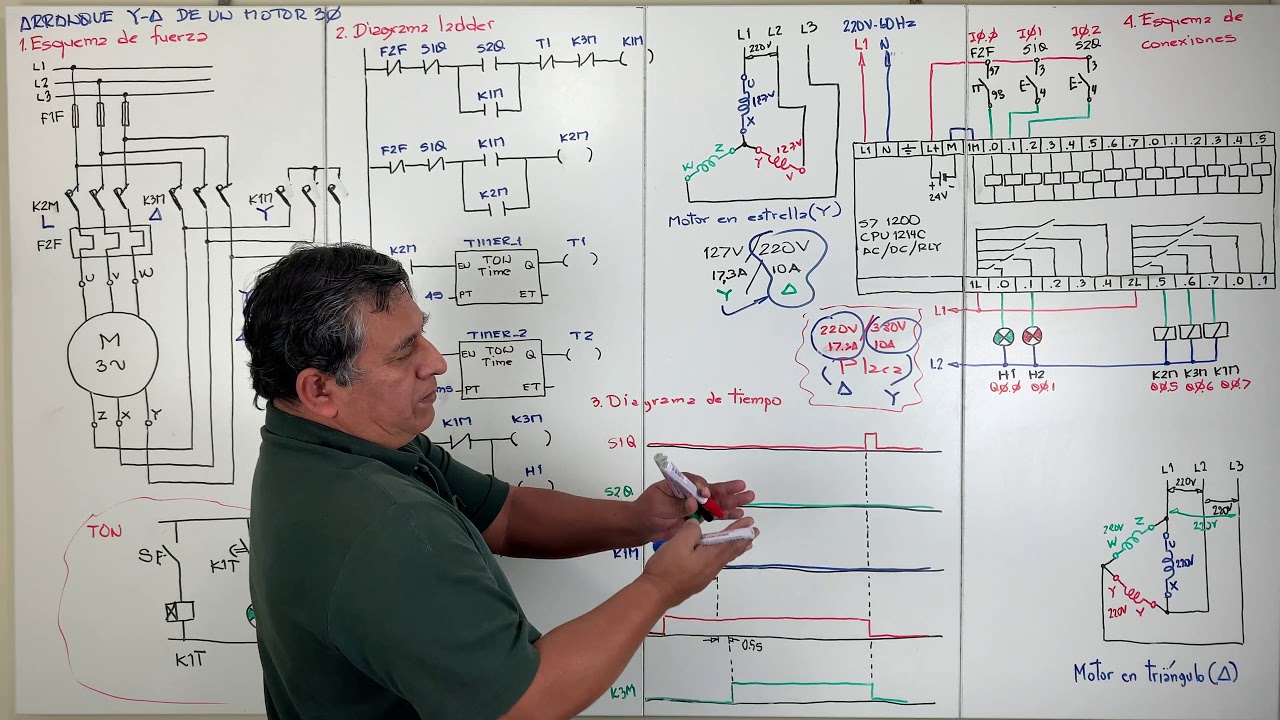 ARRANQUE Y-Δ DE UN MOTOR 3Ø
1. Esquema de fuerza
L1
L2
L3
F1F
K2M
L
K3M
Δ
K1M
Y
F2F
U V W
M
3~
Z X Y
TON
SF
K1T
K1T
2. Diagrama ladder
F2F S1Q S2Q T1 K3M K1M
K1M
F2F S1Q K1M K2M
K2M
K2M TIMER_1 T1
EN TON Q
Time
4S PT ET
TIMER_2 T2
TON Q
Time
PT ET
K1M K3M
H1
L1 L2 L3
220V
U
127V
X
Z
W
Y
127V
V
Motor en estrella (Y)
127V/220V
17,3A 10A
Y Δ
220V/380V
17.3A 10A
Placa
Δ Y
3. Diagrama de tiempo
S1Q
S2Q
K1M
0.5s
K3M
220V-60Hz
L1 N
4. Esquema de
conexiones
IØ.Ø IØ.1 IØ.2
F2F S1Q S2Q
97 3 3
98 E- 4 E- 4
L1 N L+ M 1M .0 .1 .2 .3 .4 .5 .6 .7 .0 .1 .2 .3 .4 .5
+ -
24V
S7 1200
CPU 1214C
AC/DC/RLY
1L .0 .1 .2 .3 .4 2L .5 .6 .7 .0 .1
L1
L2
H1 H2 K2M K3M K1M
QØ.Ø QØ.1 QØ.5 QØ.6 QØ.7
L1 L2 L3
220V
220V
220V
Z
220V
W
U
220V
X
Y
220V
Motor en triángulo (Δ)